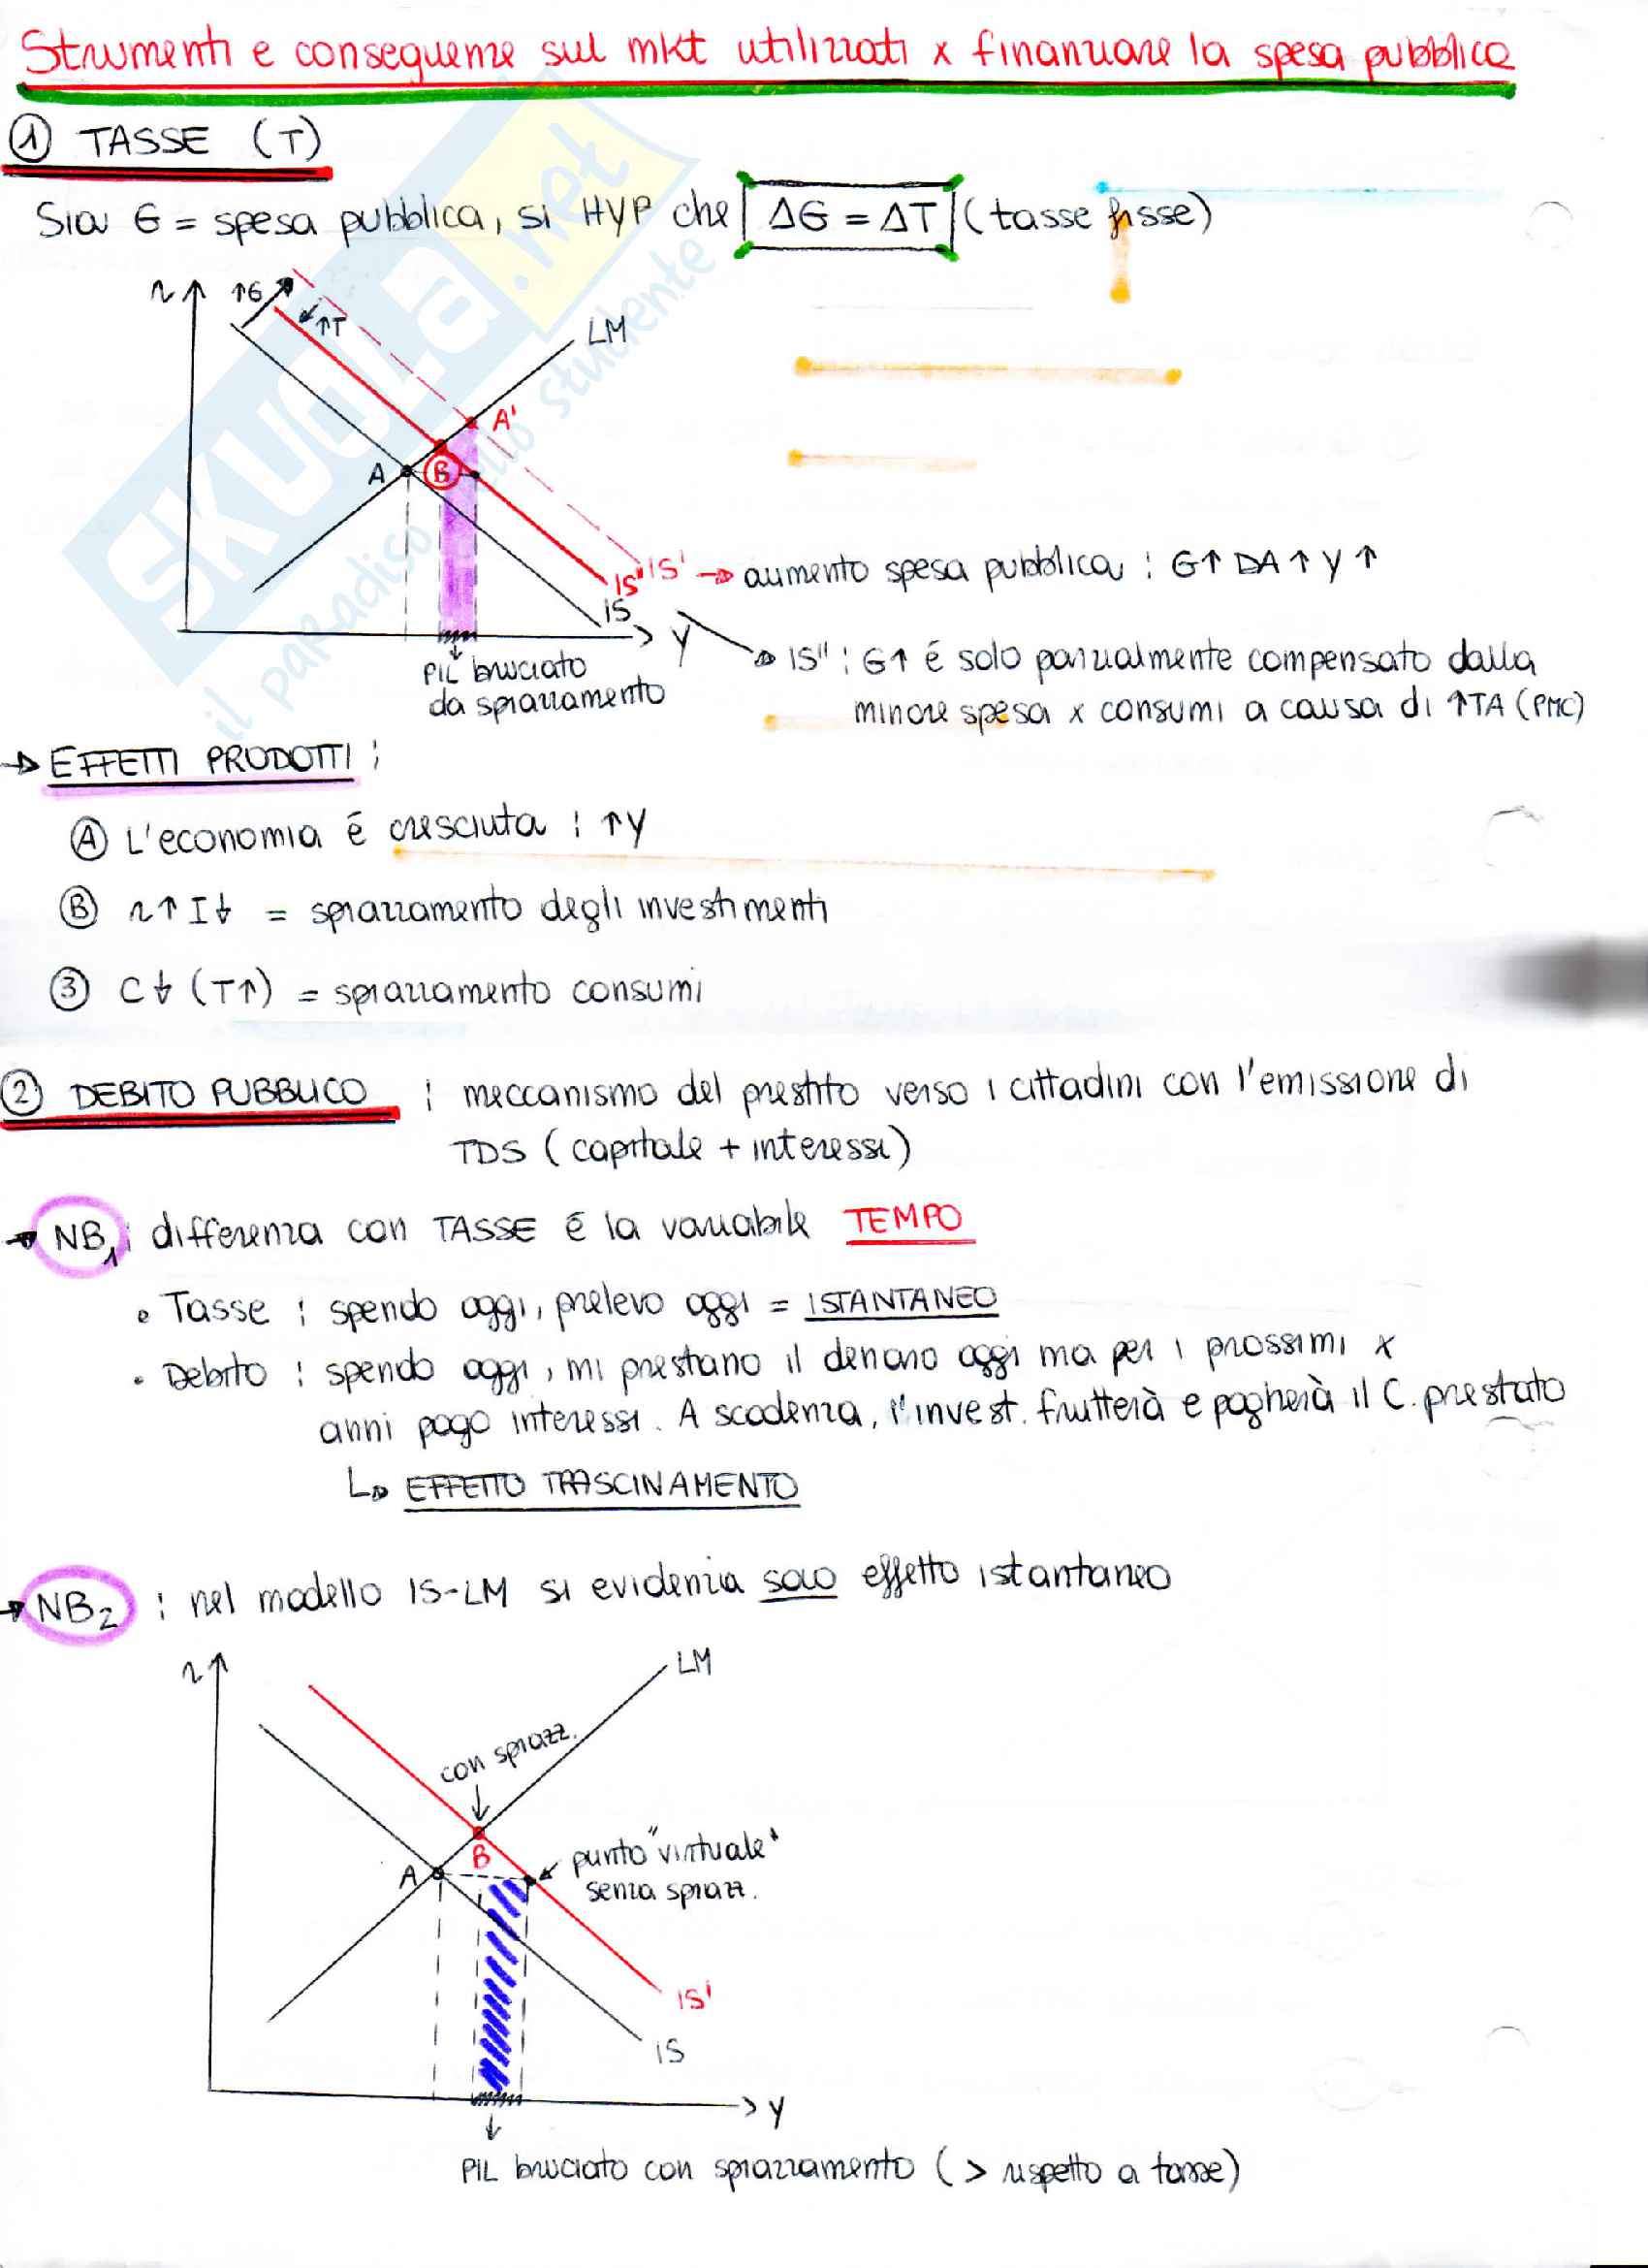 Strumenti e conseguenze sul mkt utilizzati x finanziare la spesa pubblica
① TASSE (T)
Sia G = spesa pubblica, si HYP che ΔG = ΔT (tasse fisse)
r ↑G
↑T
LM
A'
A B
IS" IS' → aumento spesa pubblica : G↑ DA↑ Y↑
IS
Y
→ IS" : G↑ é solo parzialmente compensato dalla
minore spesa x consumi a causa di ↑TA (PMC)
PIL bruciato
da spiazzamento
→ EFFETTI PRODOTTI :
Ⓐ L'economia é cresciuta : ↑Y
Ⓑ r↑ I↓ = spiazzamento degli investimenti
③ C↓ (T↑) = spiazzamento consumi
② DEBITO PUBBLICO : meccanismo del prestito verso i cittadini con l'emissione di
TDS (capitale + interessi)
→ NB1 : differenza con TASSE é la variabile TEMPO
• Tasse : spendo oggi, prelevo oggi = ISTANTANEO
• Debito : spendo oggi, mi prestano il denaro oggi ma per i prossimi x
anni pago interessi. A scadenza, l'invest. frutterà e pagherà il C. prestato
↳ EFFETTO TRASCINAMENTO
→ NB2 : nel modello IS-LM si evidenzia solo effetto istantaneo
r
LM
con spiazz.
A B
punto "virtuale"
senza spiazz.
IS'
IS
Y
PIL bruciato con spiazzamento (> rispetto a tasse)
SKUOLA.net
il paradiso dello studente